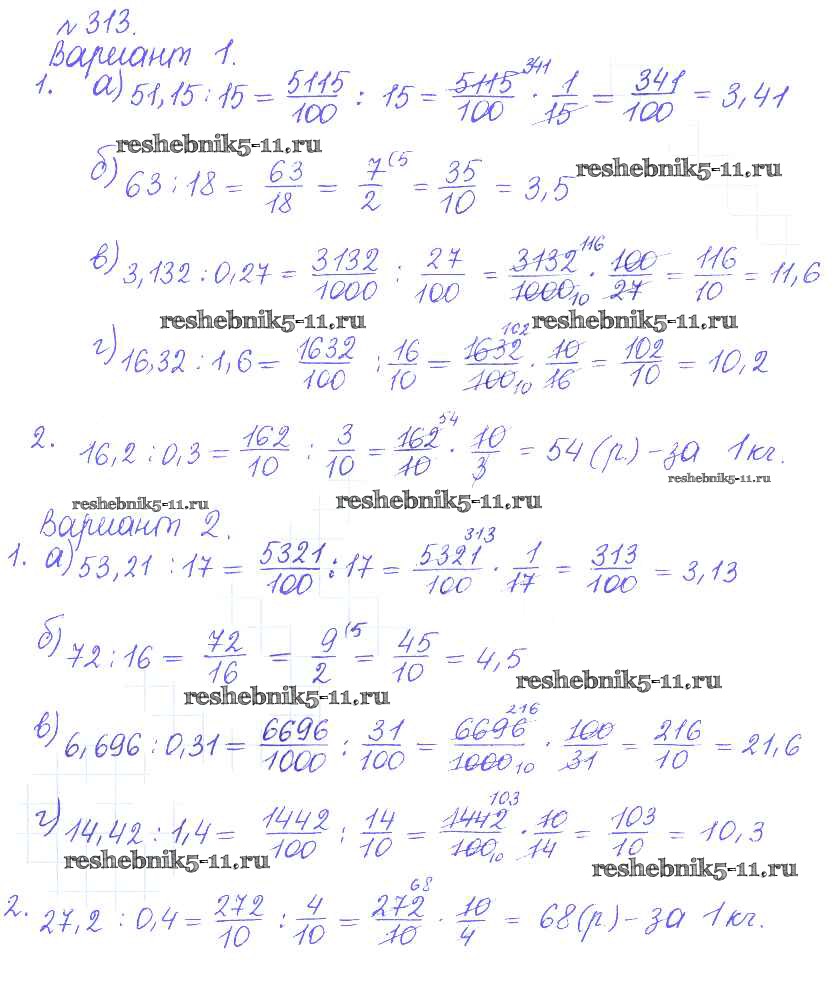 № 313.
Вариант 1.
1. а) 51,15 : 15 = 5115/100 : 15 = 5115/100 341 · 1/15 = 341/100 = 3,41
reshebnik5-11.ru
б) 63 : 18 = 63/18 = 7/2 (5 = 35/10 = 3,5
reshebnik5-11.ru
в) 3,132 : 0,27 = 3132/1000 : 27/100 = 3132/1000 116 10 · 100/27 = 116/10 = 11,6
reshebnik5-11.ru reshebnik5-11.ru
г) 16,32 : 1,6 = 1632/100 : 16/10 = 1632/100 102 10 · 10/16 = 102/10 = 10,2
2. 16,2 : 0,3 = 162/10 : 3/10 = 162/10 54 · 10/3 = 54 (р.) - за 1 кг.
reshebnik5-11.ru
reshebnik5-11.ru reshebnik5-11.ru
Вариант 2.
1. а) 53,21 : 17 = 5321/100 : 17 = 5321/100 313 · 1/17 = 313/100 = 3,13
б) 72 : 16 = 72/16 = 9/2 (5 = 45/10 = 4,5
reshebnik5-11.ru reshebnik5-11.ru
в) 6,696 : 0,31 = 6696/1000 : 31/100 = 6696/1000 216 10 · 100/31 = 216/10 = 21,6
г) 14,42 : 1,4 = 1442/100 : 14/10 = 1442/100 103 10 · 10/14 = 103/10 = 10,3
reshebnik5-11.ru reshebnik5-11.ru
2. 27,2 : 0,4 = 272/10 : 4/10 = 272/10 68 · 10/4 = 68 (р.) - за 1 кг.